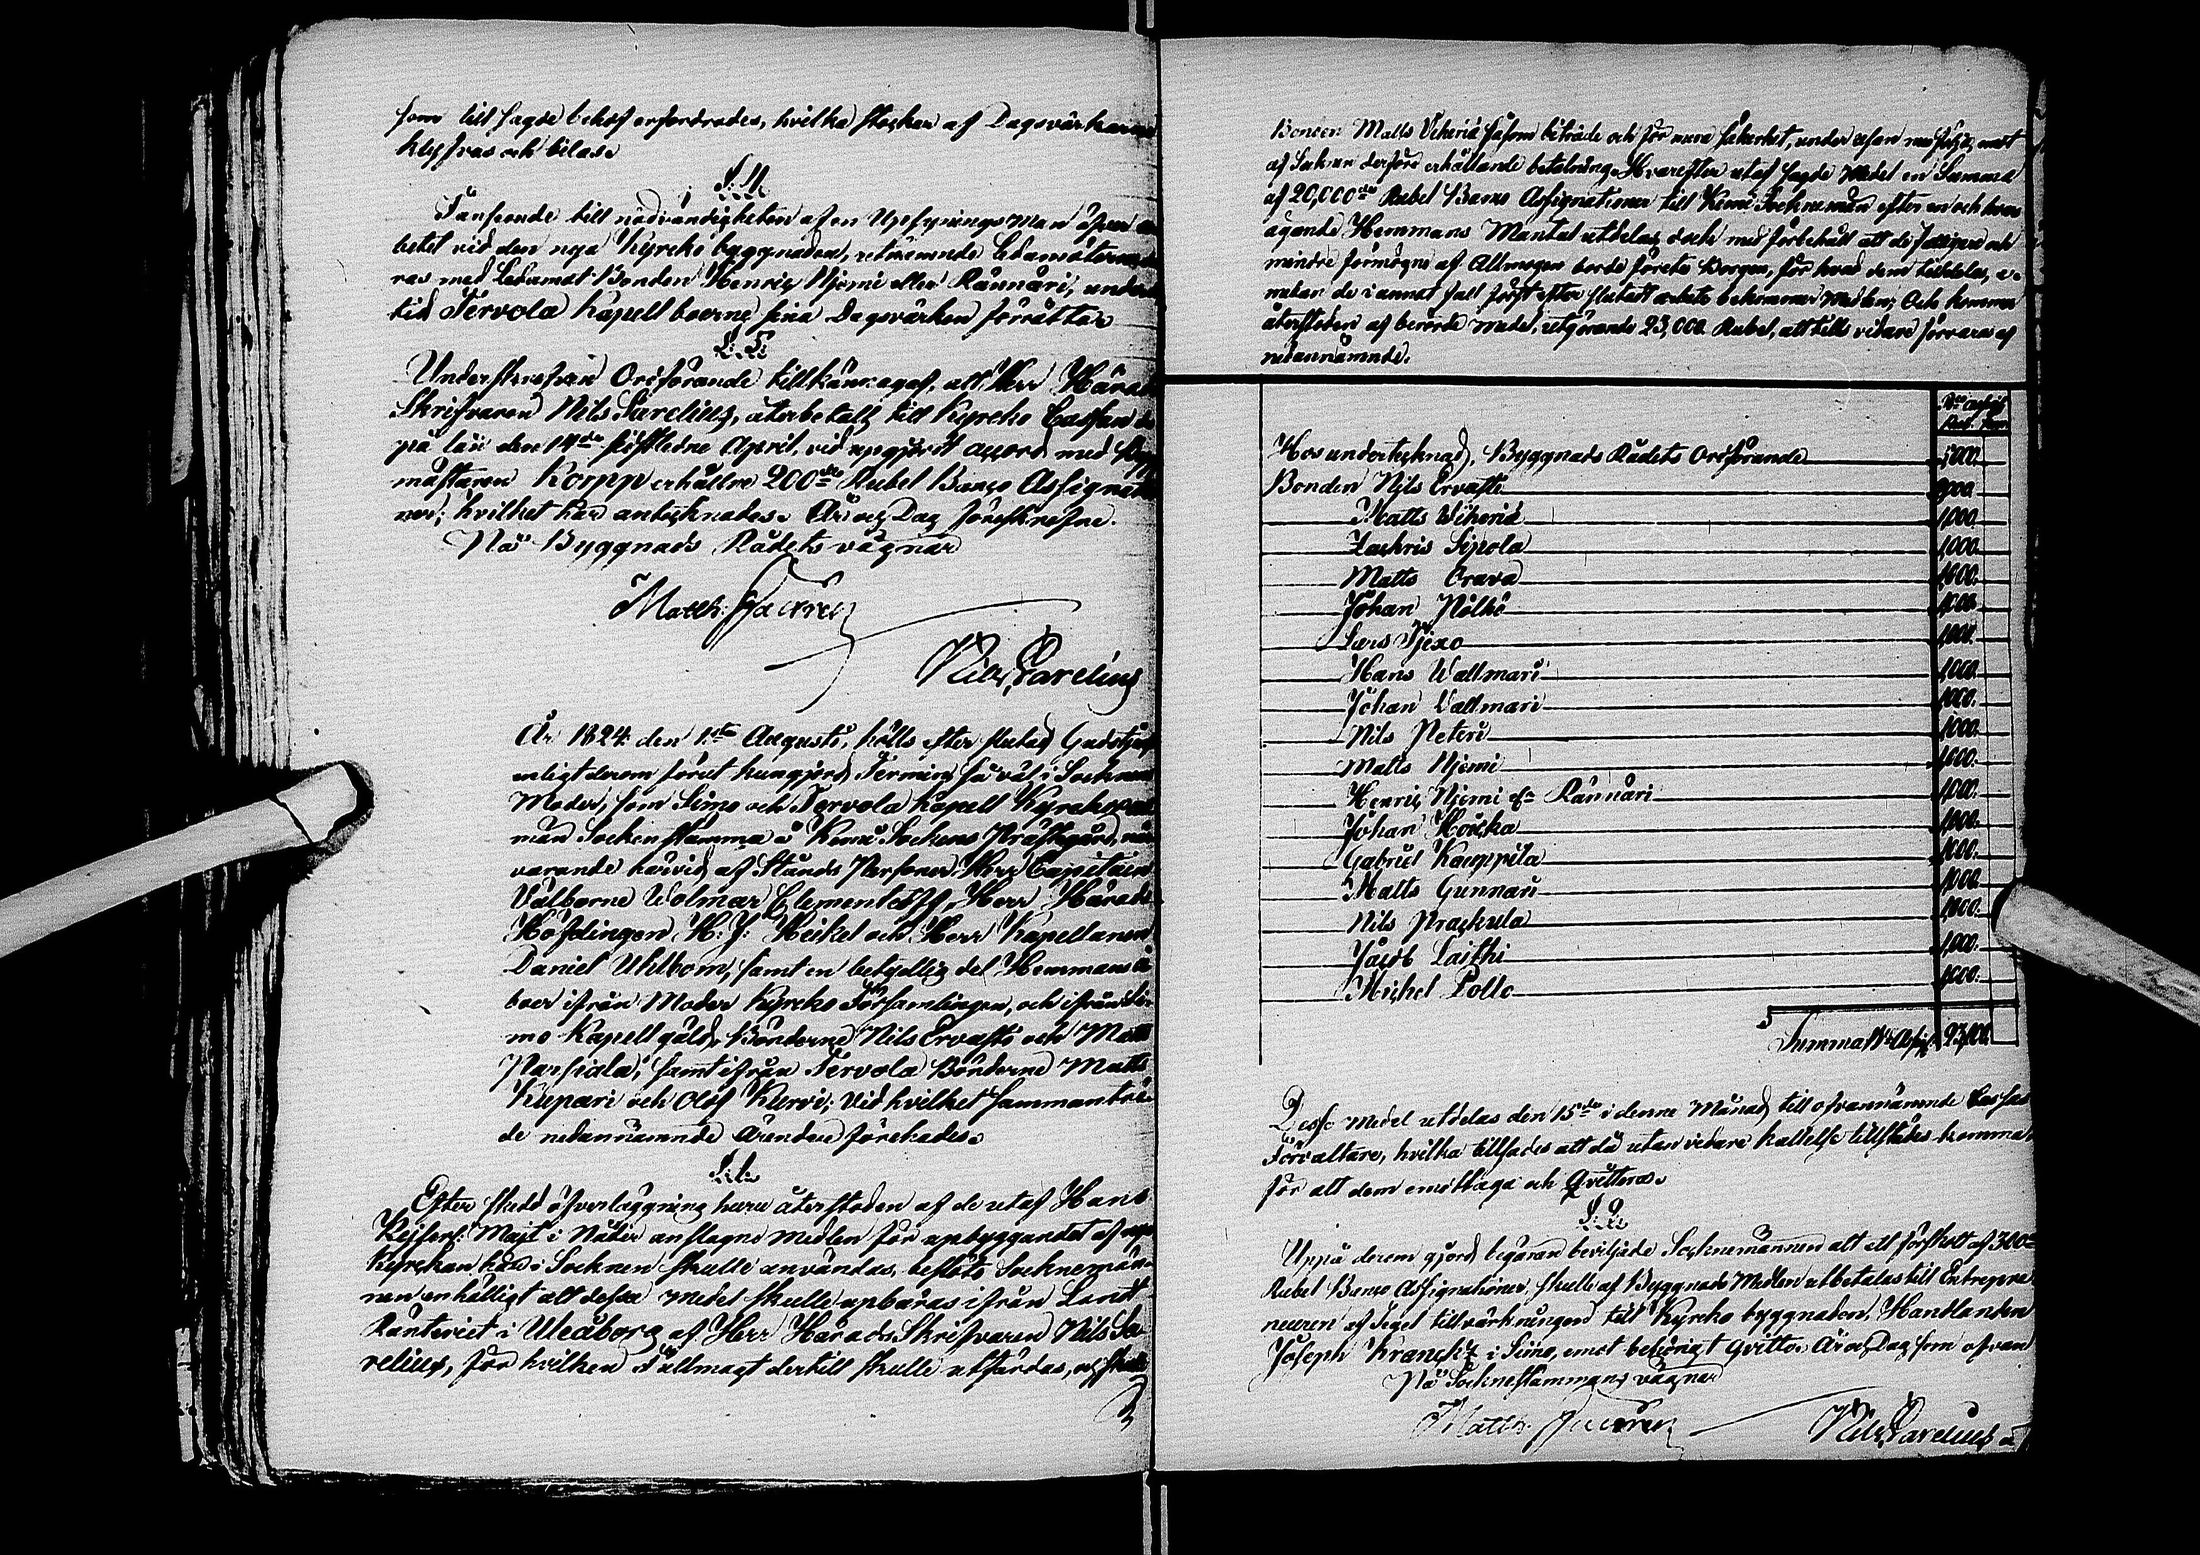 som till sagde behof erfordrades, hvilka stockar af Dagsvärkarne
klyfvas och bilas.
§. 4.
I anseende till nödvändigheten af en Upsynings Man öfver ar-
betet vid den nya Kyrcko byggnaden, utnämnde Ledamöterne
med Ledamot Bonden Henric Njemi eller Rännäri, under
tid Tervola Kapell boerne sina Dagsvärken förrätta.
§. 5.
Underskrefven Ordförande tillkännagaf, att Herr Härads
Skrifvaren Nils Sarelius, återbetalt till Kyrcko Cassan de
på lån den 14de sistledne April, vid upgjordt accord med Bygg-
mästaren Kompp erhållne 200de Rubel Banco Assignatio-
ner; hvilket här antecknades. År och Dag förskrefne.
På Byggnads Rådets vägnar
Matth:
Nils Sarelius
År 1824 den 1sta Augusti, hölls efter slutad Gudstjenst
enligt derom förut kungjord Termin, så väl i Socknens
Moder, som Simo och Tervola Kapell Kyrckor, all-
män Sockenstämma å Kemi Sockens Prästgård, när-
varande härvid af Stånds Personer, Herr Capitain
Välborne Wolmar Clementeoff, Herr Härads
Höfdingen H: J: Heikel och Herr Kapellanen
Daniel Uhlbom, samt en betydlig del Hemmans å-
boer ifrån Moder Kyrcko Församlingen, och ifrån Si-
mo Kapell gäld, Bönderne Nils Ervasti och Matts
Parsiala, samt ifrån Tervola Bönderne Matts
Kupari och Olof Kurvi; Vid hvilket sammanträ-
de nedannämnde Ärenden förekades.
§. 1.
Efter skedd öfverläggning huru återstoden af de utaf Hans
Kejserl: Majt i Nåder anslagne medlen för upbyggandet af nya
Kyrckan här i Socknen skulle användas, beslöto Socknemän-
nen enhälligt att dessa medel skulle upbäras ifrån Landt
Ränteriet i Uleåborg af Herr Härads Skrifvaren Nils Sa-
relius, för hvilken Fullmagt dertill skulle utfärdas, och skulle
Bonden Matts Vikeriä såsom biträde och för mera säkerhet,
af Saken derföre erhållande betalning. Hvarefter utaf sagde Medel en Summa
af 20,000de Rubel Banco Assignationer till Kemi Socknemän efter en och hvars
ägande Hemmans Mantal utdelas, dock med förbehåll att de fattigare och
mindre förmögne af Allmogen borde förete Borgen, för hvad dem tilldelas, e-
medan de i annat fall först efter slutadt arbete bekomma Medlen; Och kommer
återstoden af berörde medel, utgörande 23,000 Rubel, att tills vidare förvaras af
nedannämnde.
Bco Assign
Rub. Kop.
Hos undertecknad, Byggnads Rådets Ordförande 5000.
Bonden Nils Ervasti
Matts Wikeriä 1,000.
Zachris Sipola 1,000.
Matts Orava 1000.
Johan Pölhö 1000.
Lars Pjexo 1000.
Hans Wallmari 1,000.
Johan Vallmari 1000.
Nils Peteri 1000.
Matts Njemi 1000.
Henric Njemi er Rännäri 1,000.
Johan Hoicka 1000.
Gabriel Kamppila 1000.
Matts Gunnari 1000.
Nils Prackula 1000.
Jacob Laithi 1,000.
Michel Pollo 1000.
Summa Bco Assign 23,000.
Desse medel utdelas den 15de i denne Månad till ofvannämnde Cassa
Förvaltare, hvilka tillsades att då utan vidare kallelse tillstädes komma
för att dem emottaga och qvittera.
§. 2.
Uppå derom gjord begäran beviljade Socknemännen att ett förskott af 300de
Rubel Banco Assignationer, skulle af Byggnads Medlen utbetalas till Entrepre-
neuren af Tegel tillvärkningen till Kyrcko byggnaden, Handlanden
Joseph Kranck i Simo, emot behörigt qvitto. År och Dag som ofvan
På Sockenstämmans vägnar
Matth.
Nils Sarelius